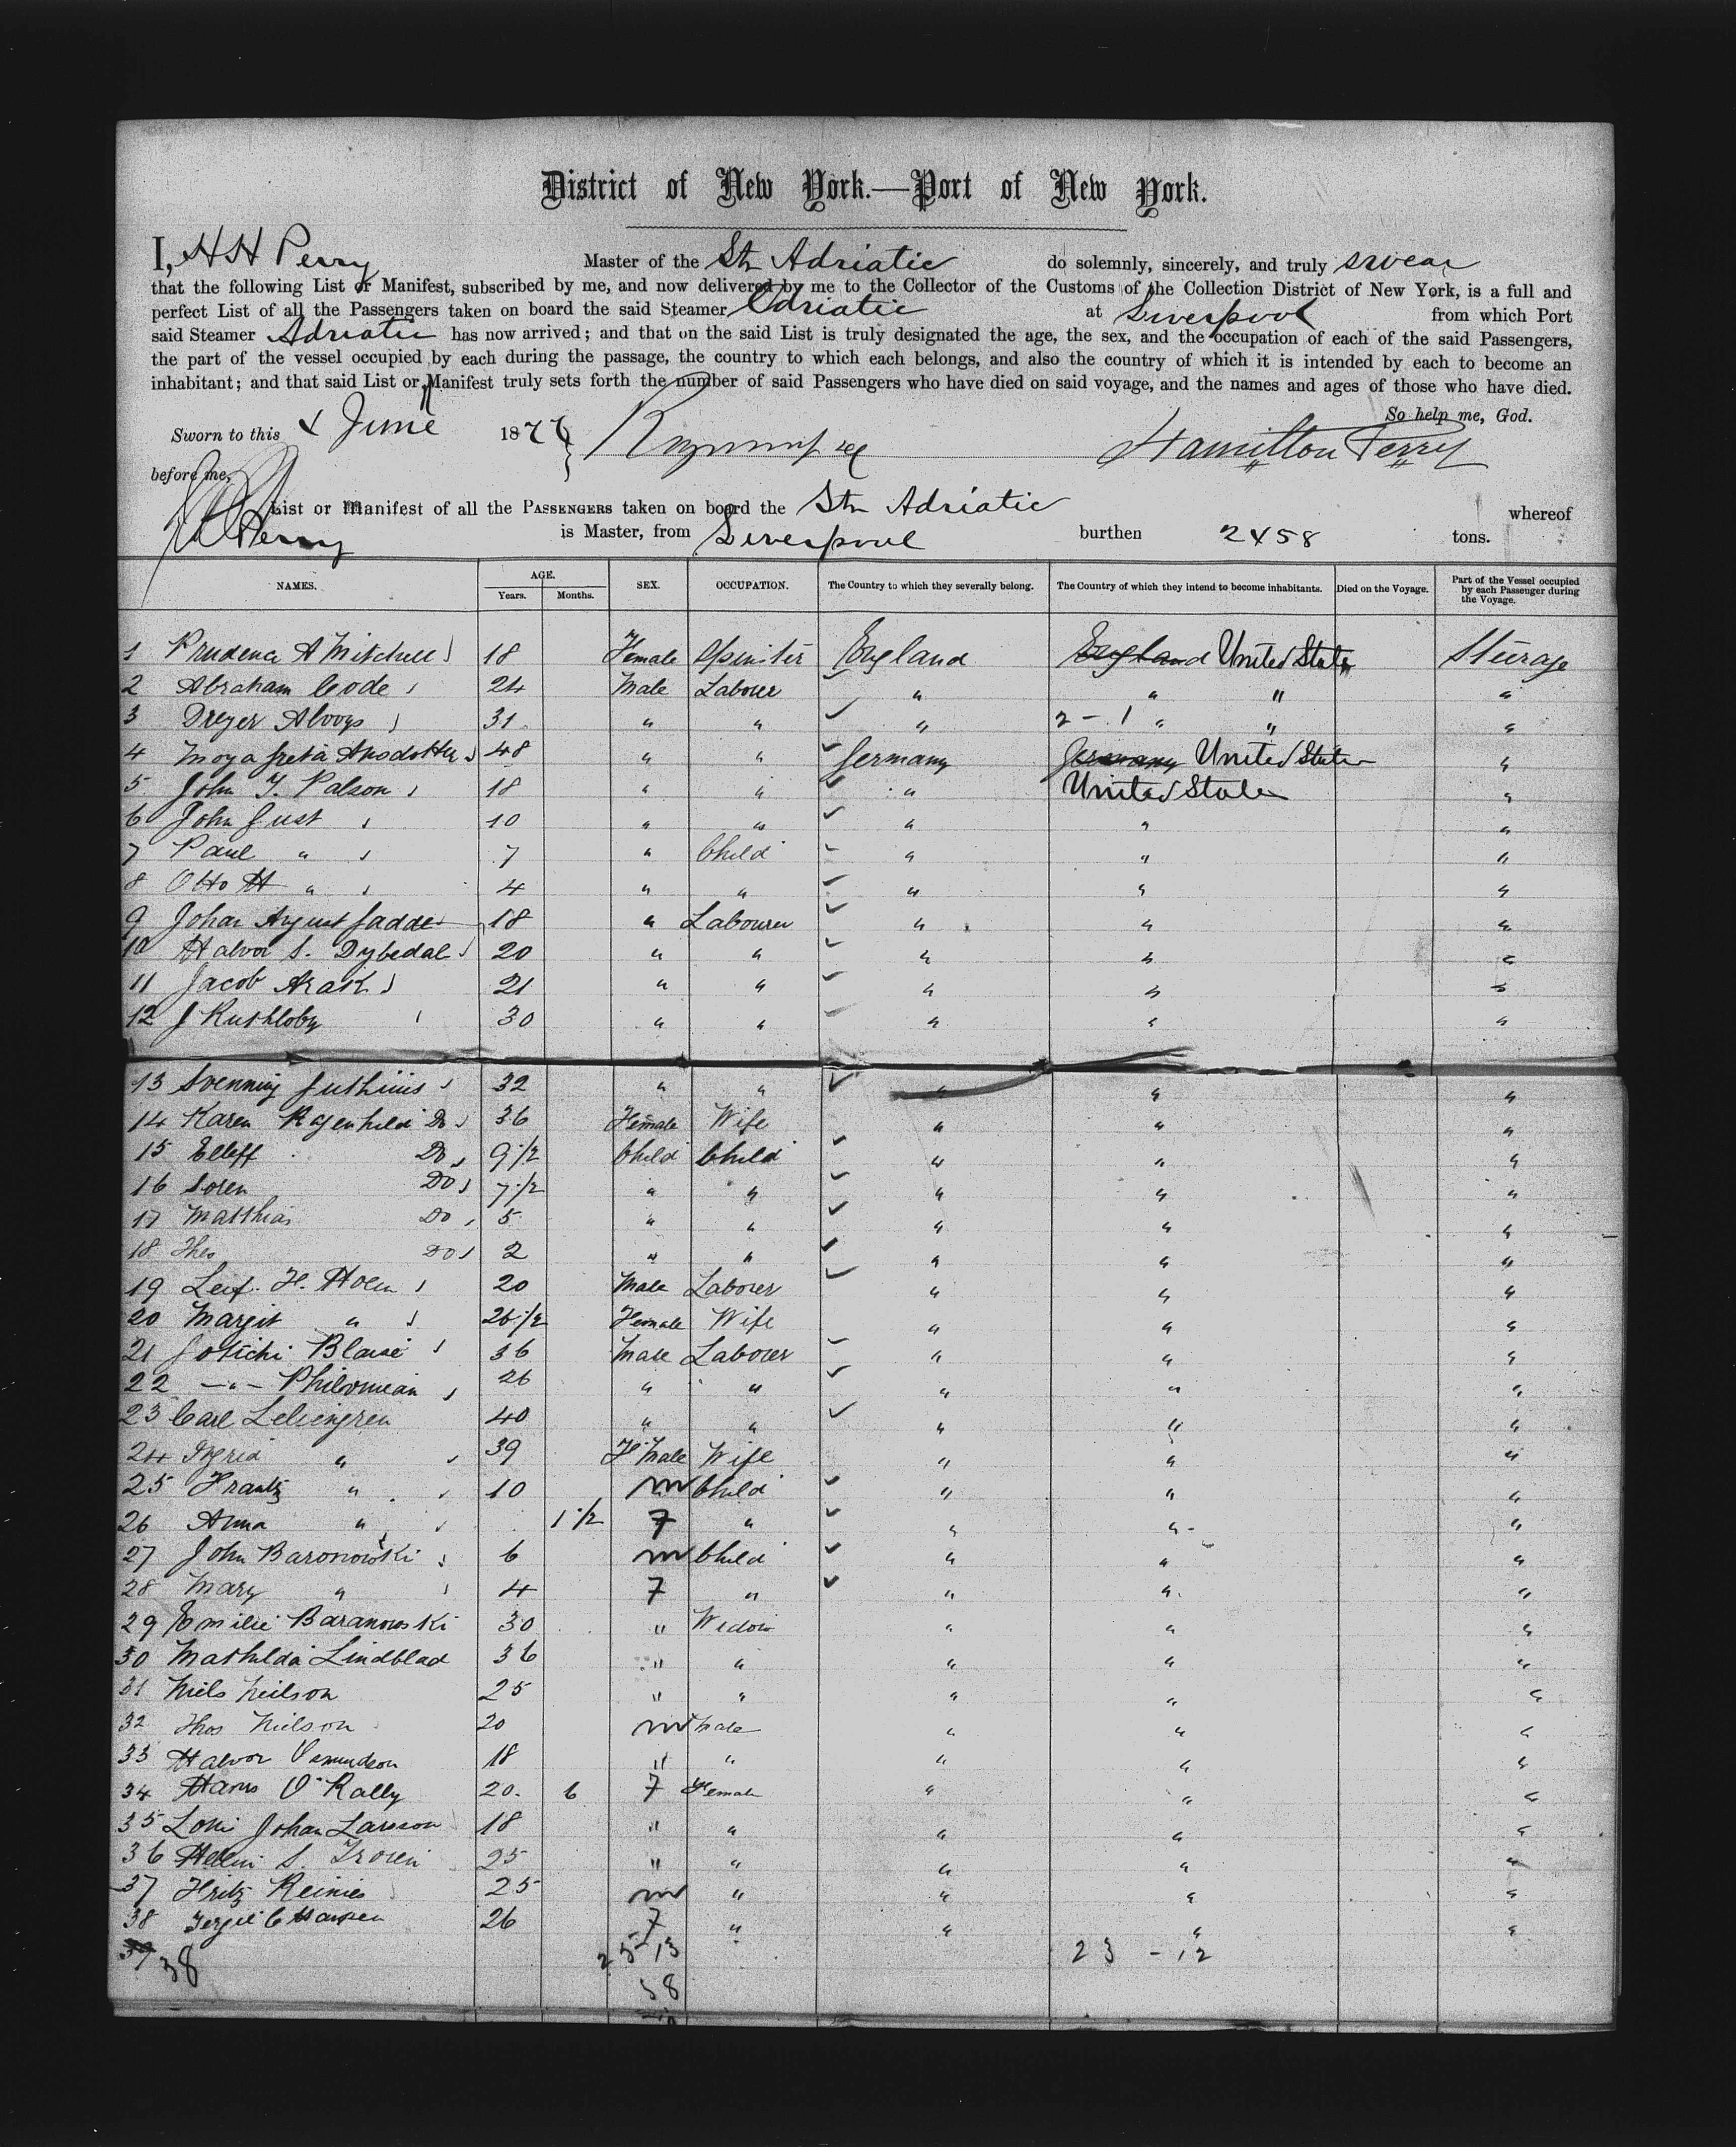 District of New York.—Port of New York.
I, H H Perry Master of the Str Adriatic do solemnly, sincerely, and truly swear
that the following List or Manifest, subscribed by me, and now delivered by me to the Collector of the Customs of the Collection District of New York, is a full and
perfect List of all the Passengers taken on board the said Steamer Adriatic at Liverpool from which Port
said Steamer Adriatic has now arrived; and that on the said List is truly designated the age, the sex, and the occupation of each of the said Passengers,
the part of the vessel occupied by each during the passage, the country to which each belongs, and also the country of which it is intended by each to become an
inhabitant; and that said List or Manifest truly sets forth the number of said Passengers who have died on said voyage, and the names and ages of those who have died.
So help me, God.
Sworn to this 4 June 1877 Hamilton Perry
before me,
List or Manifest of all the PASSENGERS taken on board the Str Adriatic whereof
H H Perry is Master, from Liverpool burthen 2458 tons.
NAMES. AGE. SEX. OCCUPATION. The Country to which they severally belong. The Country of which they intend to become inhabitants. Died on the Voyage. Part of the Vessel occupied by each Passenger during the Voyage.
Years. Months.
1 Prudence A Mitchell 18 Female Spinster England England United States Steerage
2 Abraham Code 24 Male Labourer " " " "
3 Dreyer Aloogs 31 " " " 2 - 1 " " "
4 Moya Greta Ansdotter 48 " " Germany Germany United States "
5 John F. Palson 18 " " " United States "
6 John Gust 10 " " " " "
7 Paul " 7 " Child " " "
8 Otto H " 4 " " " " "
9 Johan August Gadde 18 " Labourer " " "
10 Halvor S. Dybedal 20 " " " " "
11 Jacob Arak 21 " " " " "
12 J Rushloby 30 " " " " "
13 Svenning 32 " " " " "
14 Karen Ragenhild Do 36 Female Wife " " "
15 Elleff Do 9 1/2 Child Child " " "
16 Soren Do 7 1/2 " " " " "
17 Matthias Do 5 " " " " "
18 Thos Do 2 " " " " "
19 Leif H. Hoen 20 Male Labourer " " "
20 Margit " 26 1/2 Female Wife " " "
21 Gotichi Blaise 36 Male Labourer " " "
22 — " — Philomean 26 " " " " "
23 Carl Leliengren 40 " " " " "
24 Ingrid " 39 F Male Wife " " "
25 Frantz " 10 m Child " " "
26 Anna " 1 1/2 7 " " " "
27 John Baronowski 6 m Child " " "
28 Mary " 4 7 " " " "
29 Emilie Baranowski 30 " Widow " " "
30 Mathilda Lindblad 36 " " " " "
31 Niels Neilson 25 " " " " "
32 Thos Nielson 20 m Male " " "
33 Halvor Osmundson 18 " " " " "
34 Hans O'Rally 20 6 7 Female " " "
35 Loni Johan Larsson 18 " " " " "
36 Hellin S. 25 " " " " "
37 Fritz Reinies 25 m " " " "
38 Hansen 26 7 " " " "
39 38 25 13 23 - 12
38